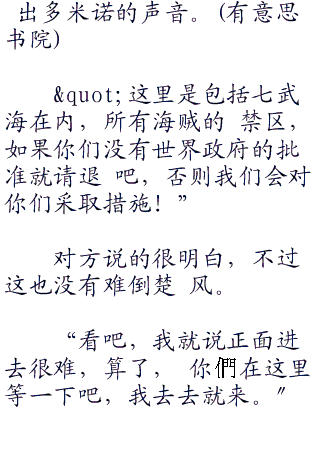 出多米诺的声音。(有意思
书院)
&quot;这里是包括七武
海在内，所有海贼的 禁区，
如果你们没有世界政府的批
准就请退 吧，否则我们会对
你们采取措施！”
对方说的很明白，不过
这也没有难倒楚 风。
“看吧，我就说正面进
去很难，算了， 你們在这里
等一下吧，我去去就来。"